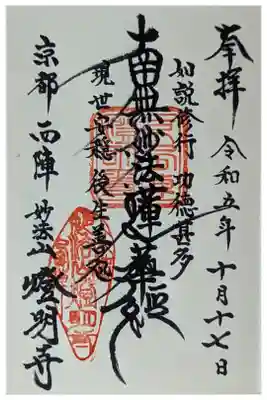 奉拝 令和五年十月十七日
如説修行 功徳甚多
南無妙法蓮華経
現世安穏 後生善処
京都西陣 妙法山 燈明寺